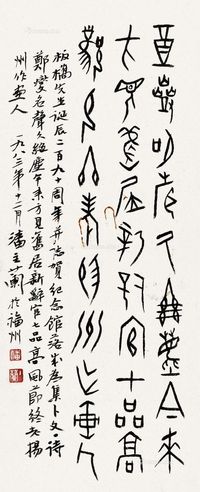 奠燮名聲久絕塵今來
方見舊居新辭官七品高
風節終老揚州作畫人
板橋先生誕辰二百九十周年并志賀紀念館落成為集卜文詩
鄭燮名聲久絕塵今來方見舊居新辭官七品高風節終老揚
州作畫人 一九八三年十二月潘主蘭於福州